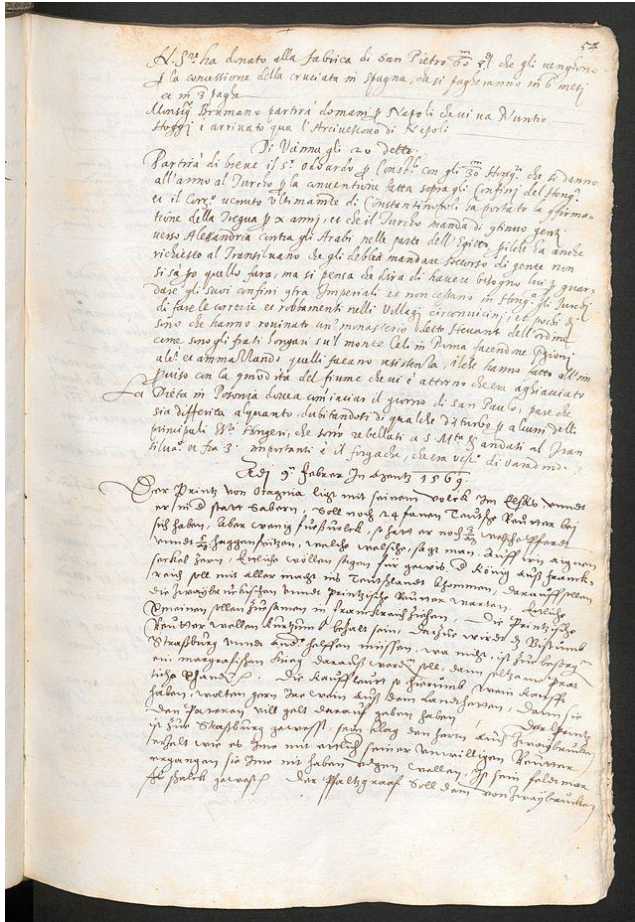 54
N. Sre ha donato alla fabrica di San Pietro che gli vengono
p la concessione della cruciata in Spagna, da si pagheranno in 6 mesi
et in 3 paghe
Monsigr Brumano partirà domani p Napoli che vi va Nuntio
Hoggi è arrivato qua l'Arcivescovo di Napoli
Di Vienna gli 20 detto
Partirà di breve il Sr Odoardo p Const. con gli 30 Hong. che si danno
all'anno al Turcho p la conventione fatta sopra gli Confini del Hong.
et il Corr. venuto ultimamte di Constantinopoli ha portato la confirma
tione della Tregua p x anni, et che il Turcho manda di continuo gente
verso Alessandria contra gli Arabi nelle parte dell'Egitto, pilche ha anche
richiesto al Transilvano che gli debbia mandare soccorso di gente non
si sa po quello farà, ma si pensa che dirà di havere bisogno lui p guar
dare gli suoi confini contra Imperiali et non cessano in Hong. gli Turchi
di fare le correrie et robbamenti nelli Villagi circonvicini, et pochi di
sono che hanno rovinato un monasterio detto dell'ordine
come sono gli frati Longari su'l monte Celi in Roma facendone prigioni
alc. et ammazzando quelli faceano resistenza, ilche hanno fatto all'im
proviso con la comodità del fiume che vi è attorno che era aghiacciato
La Dieta in Posonia dovea cominciar il giorno di San Paulo, pare che
sia differita alquanto, dubitandosi di qualche disturbo p alcuni delli
principali Sri Ongeri, che sono rebellati a S. Mta et andati al Tran
silvo. et fra gl' importanti è il forgach, che era vesc. di Varadino.
Adj 9 Febrer In 1569
Der Printz von Orania ligt mit seinem volck Im Elsas unndt
er umb statt Zabern, soll noch 24 fanen Teutsche Reutter bei
sich haben, Aber wenig fuesvolck, so hatt er noch welsche Pferdt
unndt haggenschützen, welche welsche, sagt man, auff irn aignen
seckel zern, Etliche wöllen sagen für gewis der König auß Franck
reich soll mit aller macht ins Teutschlandt khommen, darauff sollen
die Zwaybrückischen unndt Printzische Reutter warten. Etliche
vermeinen sollen zusamen in Franckreich ziehen. Die Printzische
Reutter wellen kurtzumb bezalt sein, darzue wirdt das Bistumb
Straßburg unnd helffen müssen, wa nicht, ist zue besorgen
ein margrafischen Krieg daraus werden soll, dann
Die Kauffleutt so hierumb wein kaufft
haben, wolten gern Ire wein auß dem Land haben, dann sie
den Pauren vill gelt darauf geben haben Der Printz
ist zue Straßburg gewest, sein klag den herrn auch Zwaybrücken
erzelt wie es Ime mit ettlich seiner unwilligen Reutter
ergangen sie Ime nit haben ziehen wellen, Ist sein feldmar
schalck gewest Der Pfaltzgraff soll dem von Zwaybrücken